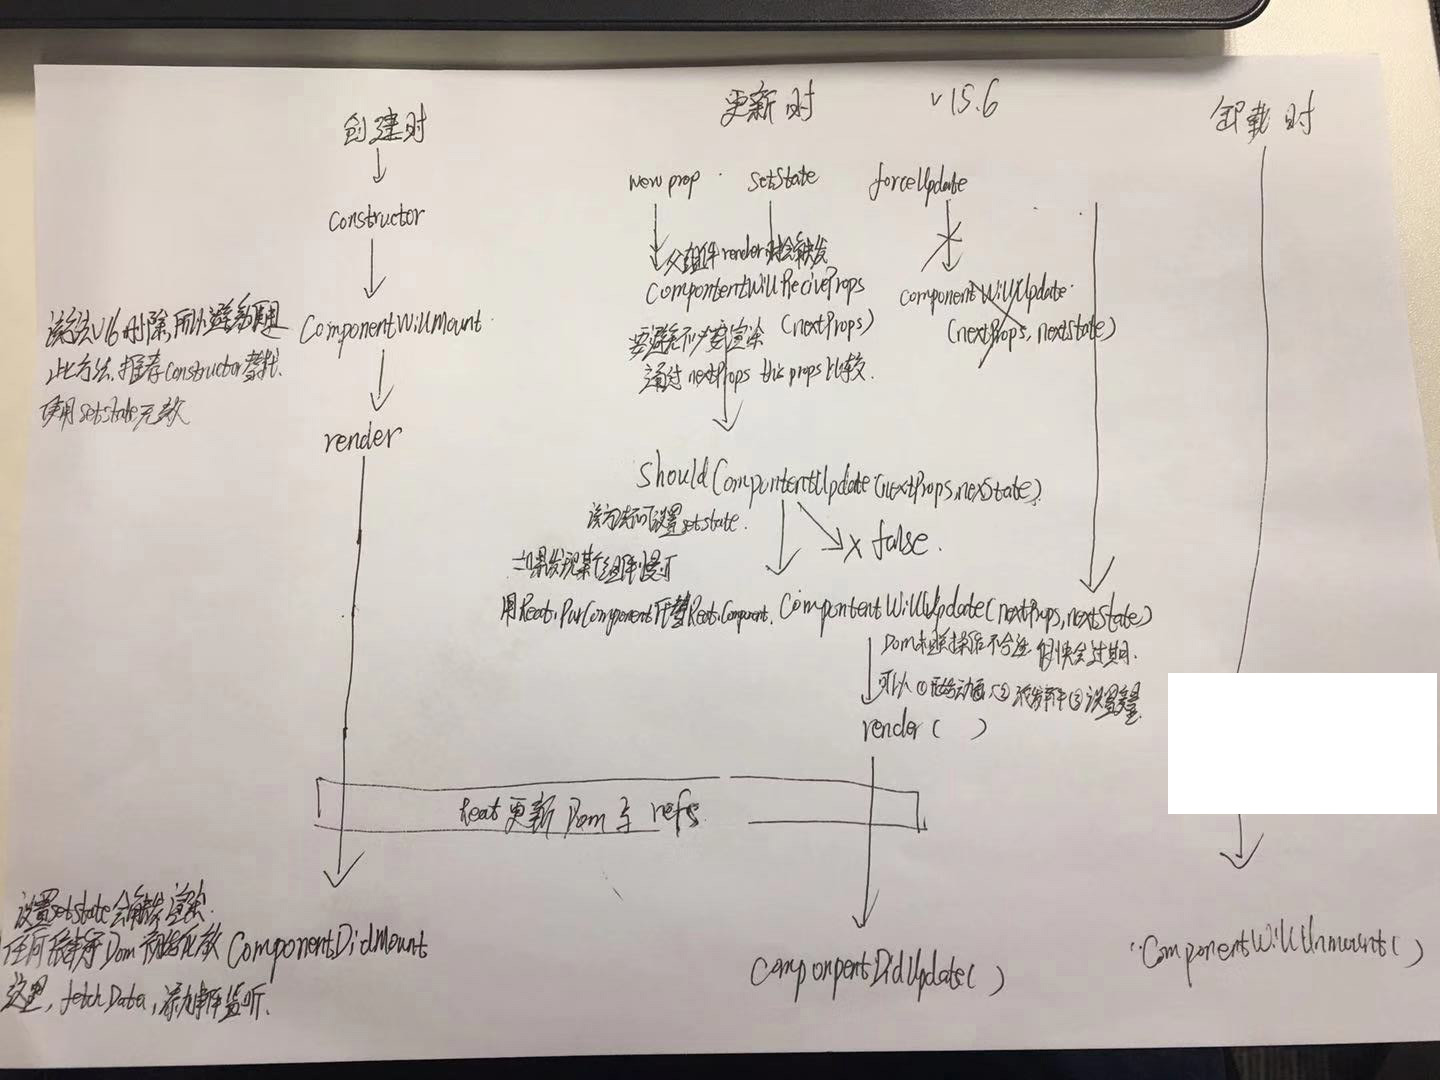 创建时
constructor
ComponentWillMount
该方法V16删除,所以避免使用
此方法,推荐constructor替代.
使用setState无效
render
更新时 v15.6
new prop setState forceUpdate
父组件render时会触发
ComponentWillReciveProps
(nextProps)
要避免不必要渲染
通过nextProps this.props比较.
componentWillUpdate
(nextProps, nextState)
ShouldComponentUpdate(nextProps,nexState)
该方法不可设置setstate.
如果发现某个组件慢可
用Reat.PurComponent代替Reat.Component.
x false.
ComponentWillUpdate(nextProps,nextState)
Dom 不合适 很快会过期.
可以①开始动画②派发事件③设置变量
render ( )
Reat更新 Dom 与 refs
设置setstate会触发渲染.
任何依赖于Dom初始化放
这里,fetchData,添加事件监听.
ComponentDidMount
ComponpentDidUpdate( )
卸载时
ComponentWillUnmount( )